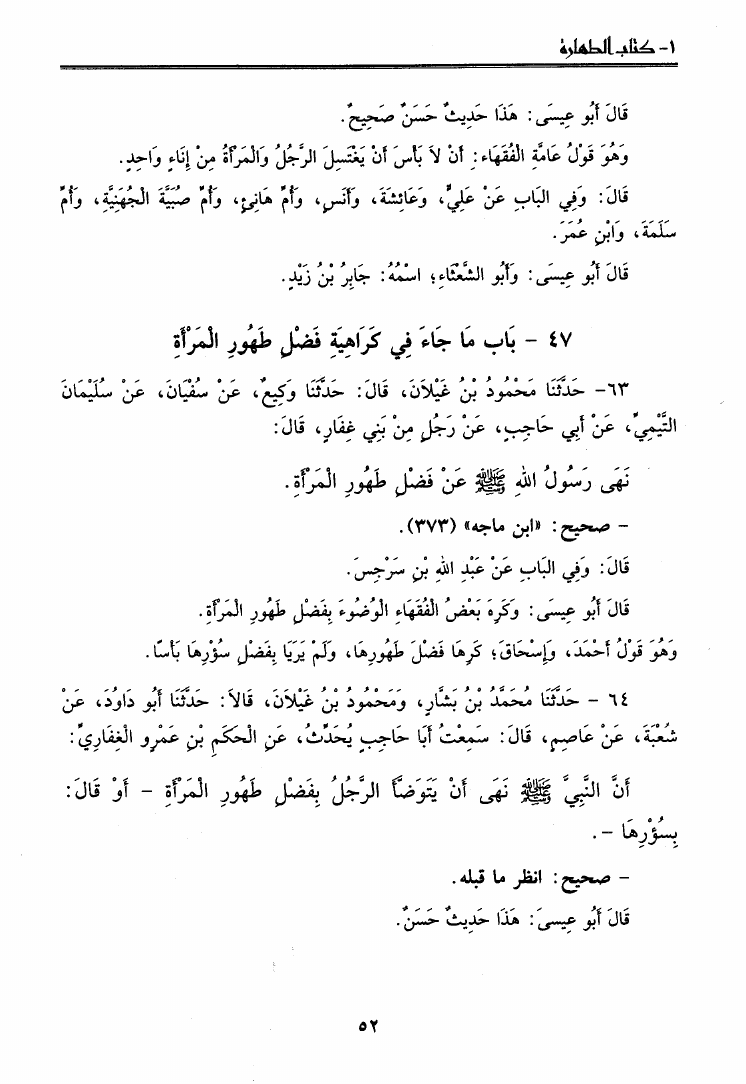 ١- كتاب الطهارة
قَالَ أَبُو عِيسَى: هَذَا حَدِيثٌ حَسَنٌ صَحِيحٌ.
وَهُوَ قَوْلُ عَامَّةِ الْفُقَهَاءِ: أَنْ لاَ بَأْسَ أَنْ يَغْتَسِلَ الرَّجُلُ وَالْمَرْأَةُ مِنْ إِنَاءٍ وَاحِدٍ.
قَالَ: وَفِي الْبَابِ عَنْ عَلِيٍّ، وَعَائِشَةَ، وَأَنَسٍ، وَأُمِّ هَانِئٍ، وَأُمِّ صُبَيَّةَ الْجُهَنِيَّةِ، وَأُمِّ
سَلَمَةَ، وَابْنِ عُمَرَ.
قَالَ أَبُو عِيسَى: وَأَبُو الشَّعْثَاءِ؛ اسْمُهُ: جَابِرُ بْنُ زَيْدٍ.
٤٧ - بَاب مَا جَاءَ فِي كَرَاهِيَةِ فَضْلِ طَهُورِ الْمَرْأَةِ
٦٣- حَدَّثَنَا مَحْمُودُ بْنُ غَيْلاَنَ، قَالَ: حَدَّثَنَا وَكِيعٌ، عَنْ سُفْيَانَ، عَنْ سُلَيْمَانَ
التَّيْمِيِّ، عَنْ أَبِي حَاجِبٍ، عَنْ رَجُلٍ مِنْ بَنِي غِفَارٍ، قَالَ:
نَهَى رَسُولُ اللهِ ﷺ عَنْ فَضْلِ طَهُورِ الْمَرْأَةِ.
- صحيح: «ابن ماجه» (٣٧٣).
قَالَ: وَفِي الْبَابِ عَنْ عَبْدِ اللهِ بْنِ سَرْجِسَ.
قَالَ أَبُو عِيسَى: وَكَرِهَ بَعْضُ الْفُقَهَاءِ الْوُضُوءَ بِفَضْلِ طَهُورِ الْمَرْأَةِ.
وَهُوَ قَوْلُ أَحْمَدَ، وَإِسْحَاقَ؛ كَرِهَا فَضْلَ طَهُورِهَا، وَلَمْ يَرَيَا بِفَضْلِ سُؤْرِهَا بَأْسًا.
٦٤ - حَدَّثَنَا مُحَمَّدُ بْنُ بَشَّارٍ، وَمَحْمُودُ بْنُ غَيْلاَنَ، قَالاَ: حَدَّثَنَا أَبُو دَاوُدَ، عَنْ
شُعْبَةَ، عَنْ عَاصِمٍ، قَالَ: سَمِعْتُ أَبَا حَاجِبٍ يُحَدِّثُ، عَنِ الْحَكَمِ بْنِ عَمْرٍو الْغِفَارِيِّ:
أَنَّ النَّبِيَّ ﷺ نَهَى أَنْ يَتَوَضَّأَ الرَّجُلُ بِفَضْلِ طَهُورِ الْمَرْأَةِ - أَوْ قَالَ:
بِسُؤْرِهَا -.
- صحيح: انظر ما قبله.
قَالَ أَبُو عِيسَى: هَذَا حَدِيثٌ حَسَنٌ.
٥٢